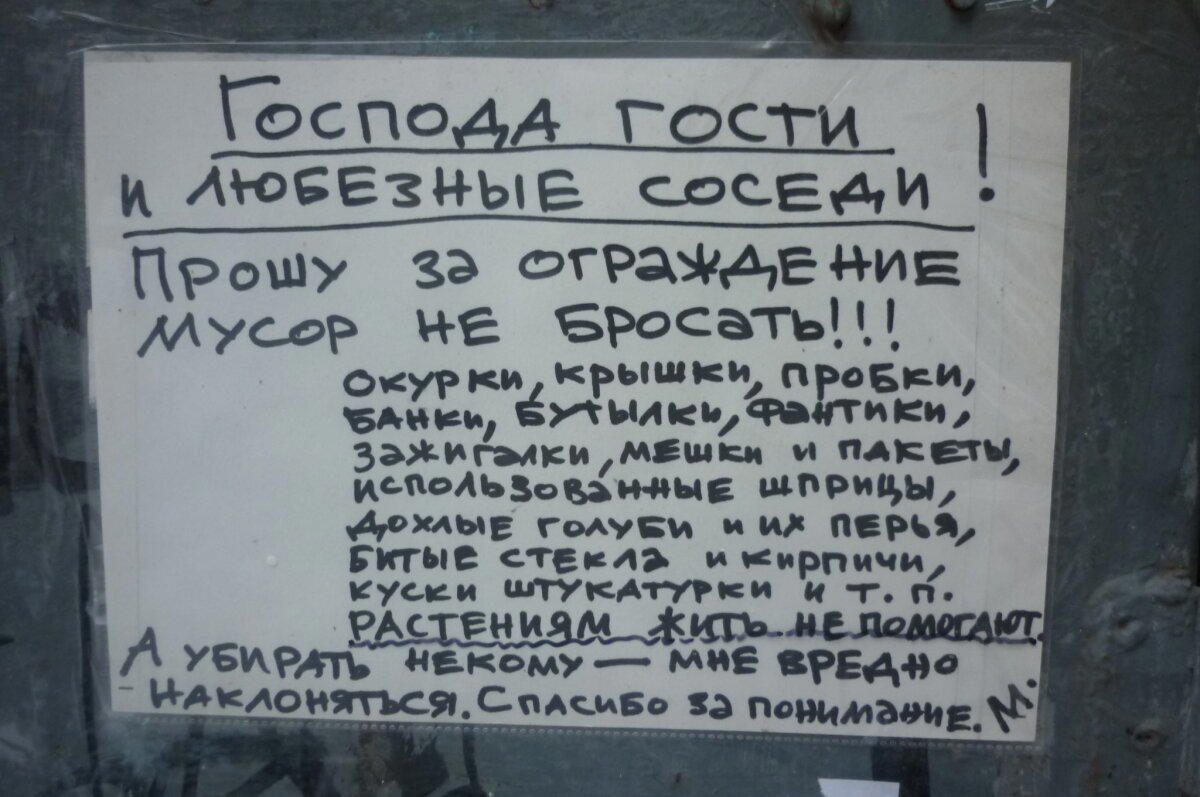 Господа гости
и любезные соседи!
Прошу за ограждение
мусор не бросать!!!
окурки, крышки, пробки,
банки, бутылки, фантики,
зажигалки, мешки и пакеты,
использованные шприцы,
дохлые голуби и их перья,
битые стекла и кирпичи,
куски штукатурки и т. п.
РАСТЕНИЯМ ЖИТЬ НЕ ПОМОГАЮТ.
А убирать некому — мне вредно
наклоняться. Спасибо за понимание. М.